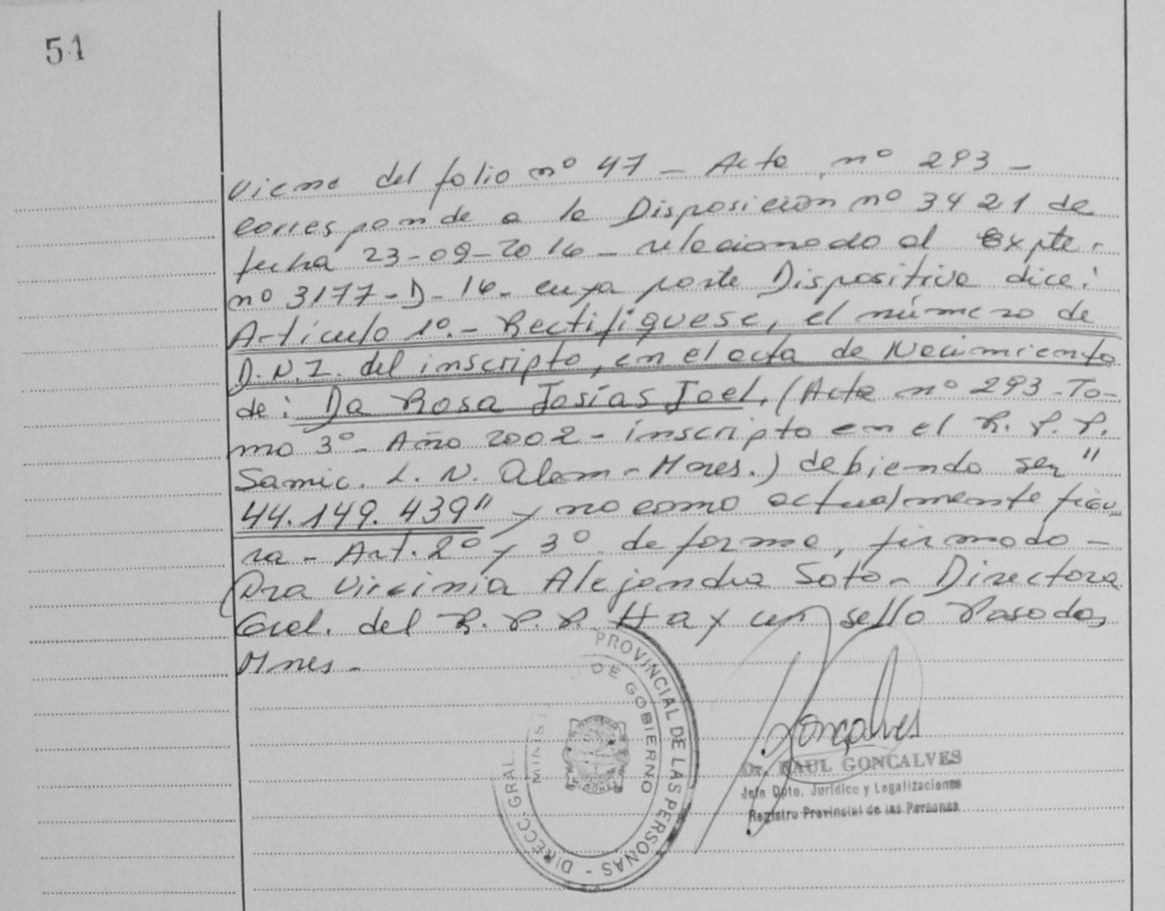 51
Viene del folio nº 47 - Acta nº 293 -
corresponde a la Disposición nº 3421 de
fecha 23-09-2016 - relacionado al Expte.
nº 3177-D-16- cuya parte Dispositiva dice:
Artículo 1º.- Rectifíquese, el número de
D.N.I. del inscripto, en el acta de Nacimiento
de: Da Rosa Josías Joel, (Acta nº 293-To-
mo 3º- Año 2002 - inscripto en el R. P. P.
Samic. L. N. Alem - Mnes.) debiendo ser "
44.149.439" y no como actualmente figu-
ra - Art. 2º y 3º de forma, firmado -
Dra Virginia Alejandra Soto - Directora
Gral. del R. P. P. Hay un sello Posadas,
Mnes -
PROVINCIAL DE LAS PERSONAS - DIRECC. GRAL.
MINIST DE GOBIERNO
Gonçalves
Dr. RAUL GONCALVES
Jefe Dpto. Jurídico y Legalizaciones
Registro Provincial de las Personas